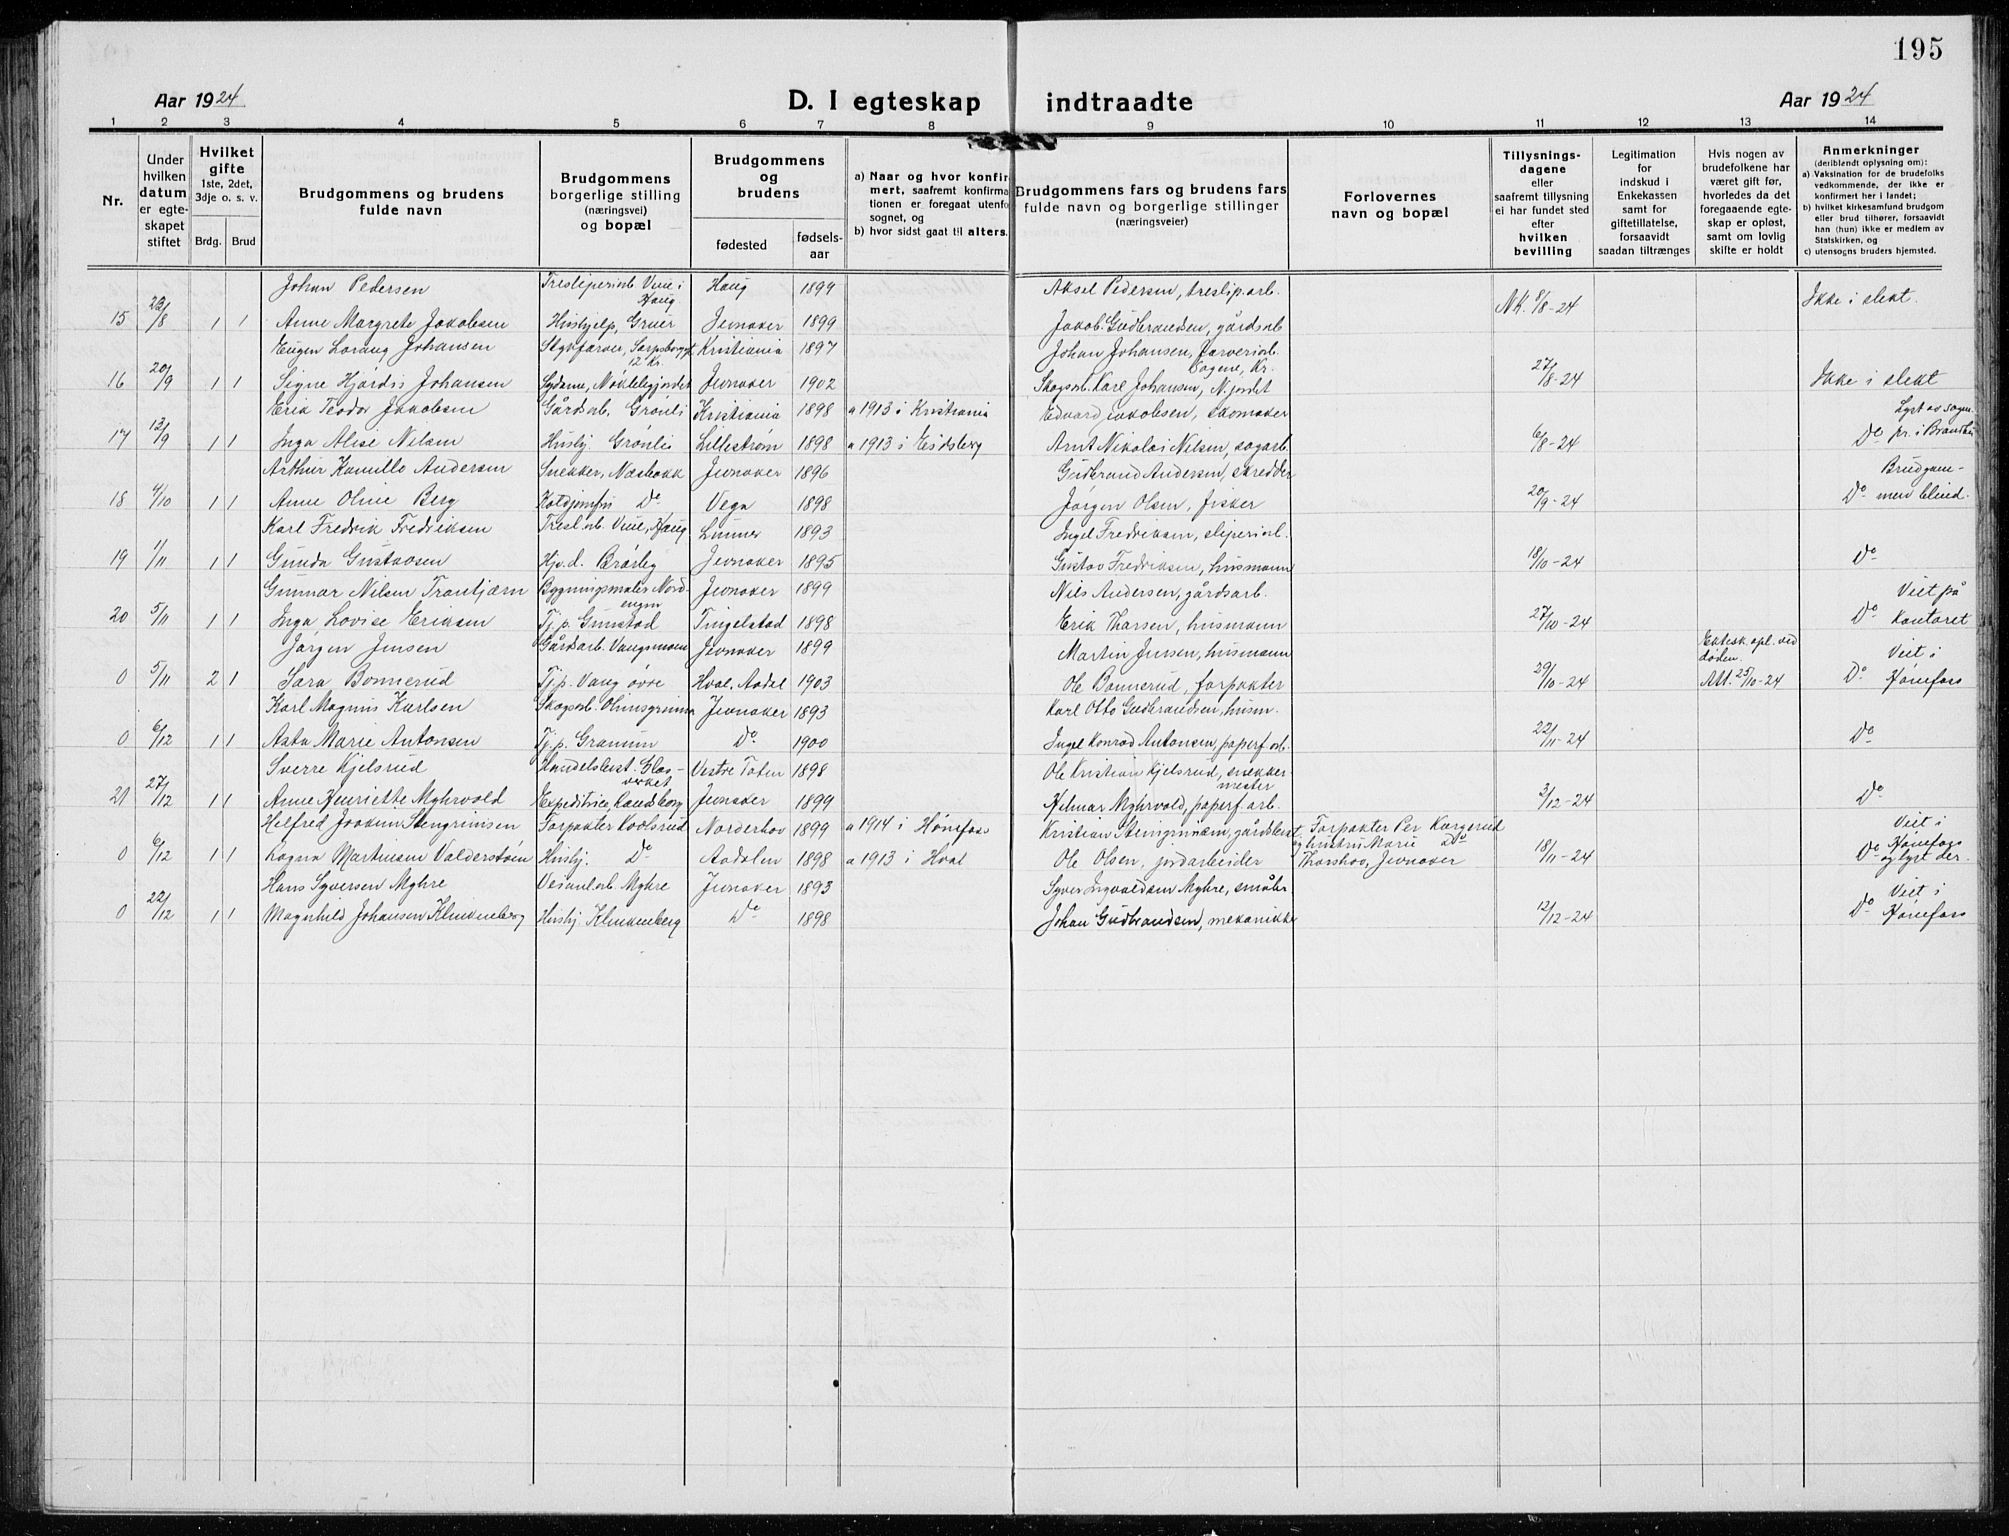 195
Aar 1924 D. I egteskap indtraadte Aar 1924
1 2 3 4 5 6 7 8 9 10 11 12 13 14
Nr.
Under hvilken datum er egteskapet stiftet
Hvilket gifte 1ste, 2det, 3dje o. s. v. Brdg. Brud
Brudgommens og brudens fulde navn
Brudgommens borgerlige stilling (næringsvei) og bopæl
Brudgommens og brudens fødested fødselsaar
a) Naar og hvor konfirmert, saafremt konfirmationen er foregaat utenfor sognet, og
b) hvor sidst gaat til alters.
Brudgommens fars og brudens fars fulde navn og borgerlige stillinger (næringsveier)
Forlovernes navn og bopæl
Tillysningsdagene eller saafremt tillysning ei har fundet sted efter hvilken bevilling
Legitimation for indskud i Enkekassen samt for giftetillatelse, forsaavidt saadan tiltrænges
Hvis nogen av brudefolkene har været gift før, hvorledes da det foregaaende egteskap er opløst, samt om lovlig skifte er holdt
Anmerkninger (deriblendt oplysning om):
a) Vaksination for de brudefolks vedkommende, der ikke er konfirmert her i landet;
b) hvilket kirkesamfund brudgom eller brud tilhører, forsaavidt han (hun) ikke er medlem av Statskirken, og
c) utensogns bruders hjemsted.
Johan Pedersen Tresliperiarb. Viue i Haug Haug 1899 Aksel Pedersen, treslip.arb.
15 23/8 1 1 Anne Margrete Jakobsen Hushjelp, Gruer Jevnaker 1899 Jakob Gudbrandsen, gårdsarb. N.k. 8/8-24 Ikke i slekt.
Eugen Lorang Johansen Stykfarver, Sarpsborggt. 12 Kr. Kristiania 1897 Johan Johansen, Farveriarb. Sagene, Kr.
16 20/9 1 1 Signe Hjördis Johansen Sydame, Nøklebyjordet Jevnaker 1902 Skogsarb. Karl Johansen, N.jordet 27/8-24 Ikke i slekt
Erik Teodor Jakobsen Gårdsarb. Grönli Kristiania 1898 a 1913 i Kristiania Edvard Jakobsen, skomaker Lyst av sogn
17 13/9 1 1 Inga Alise Nilsen Hushj. Grönli Lillestrøm 1898 a 1913 i Eidsberg Arnt Nikolai Nilsen, sagarb. 6/8-24 Do pr. i Brandbu
Arthur Kamillo Andersen Snekker, Næsbakk Jevnaker 1896 Gudbrand Andersen, skredder Brudgom-
18 4/10 1 1 Anne Oline Berg Do Vega 1898 Jørgen Olsen, fisker 20/9-24 Do men blind.
Karl Fredrik Fredriksen Tresl.arb. Viue, Haug Lunner 1893 Ingel Fredriksen, sliperiarb.
19 1/11 1 1 Gunda Gustavsen Hjv.d. Brørby Jevnaker 1895 Gustav Fredriksen, husmann 18/10-24 Do
Gunnar Nilsen Trantjærn Bygningsmaler Nordengen Jevnaker 1899 Nils Andersen, gårdsarb. Viet på
20 5/11 1 1 Inga Lovise Eriksen Tj.p. Grinstad Tingelstad 1898 Erik Tharsen, husmann 27/10-24 Do kontoret
Jørgen Jensen Gårdsarb. Vangsmoen Jevnaker 1899 Martin Jensen, husmann Ektesk. opl. ved døden. Viet i
0 5/11 2 1 Sara Bonnerud Tj.p. Vang øvre Hval, Aadal 1903 Ole Bonnerud, forpakter 29/10-24 Att. 25/10-24 Do Hønefoss
Karl Magnus Karlsen Skogsarb. Olimsgrinna Jevnaker 1893 Karl Otto Gudbrandsen, husm.
0 6/12 1 1 Asta Marie Antonsen Tj.p. Granum Do 1900 Ingel Konrad Antonsen, papirf.arb. 22/11-24 Do
Sverre Kjelsrud Handelsbest. Glasverket Vestre Toten 1898 Ole Kristian Kjelsrud, snekkermester
21 27/12 1 1 Anne Henriette Myhrvold Expeditrice, Randsborg Jevnaker 1899 Hilmar Myhrvold, papirf.arb. 3/12-24 Do
Helfred Joakim Stengrimsen Forpakter Koolsrud Norderhov 1899 a 1914 i Hønefoss Kristian Stengrimsen, gårdsbest. Forpakter Per Kørgerud Viet i
0 6/12 1 1 Ragna Martinsen Valderstøen Hushj. Do Aadalen 1898 a 1913 i Hval Ole Olsen, jordarbeider og hustru Marie Do Thorshov, Jevnaker 18/11-24 Do Hønefoss og lyst der.
Hans Syversen Myhre Veiantarb. Myhre Jevnaker 1893 Syver Ingvaldsen Myhre, småbr. Viet i
0 22/12 1 1 Magnhild Johansen Klinkenberg Hushj. Klinkenberg Do 1898 Johan Gudbrandsen, mekaniker 12/12-24 Do Hønefoss